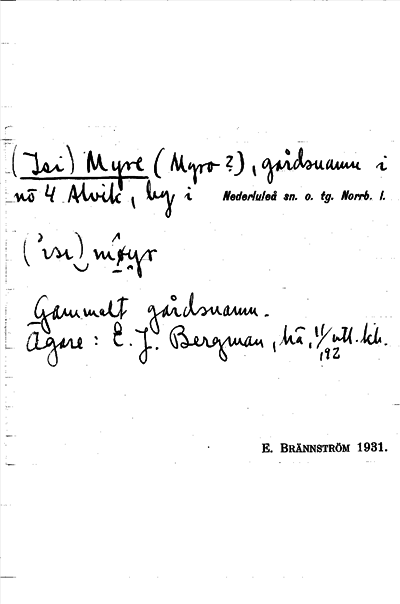 (Isi) Myre (Myro?), gårdsnamn i
nö 4 Alvik, by i Nederluleå sn. o. tg. Norrb. l.
Gammalt gårdsnamn.
Ägare: E. J. Bergman, hä,
E. BRÄNNSTRÖM 1931.